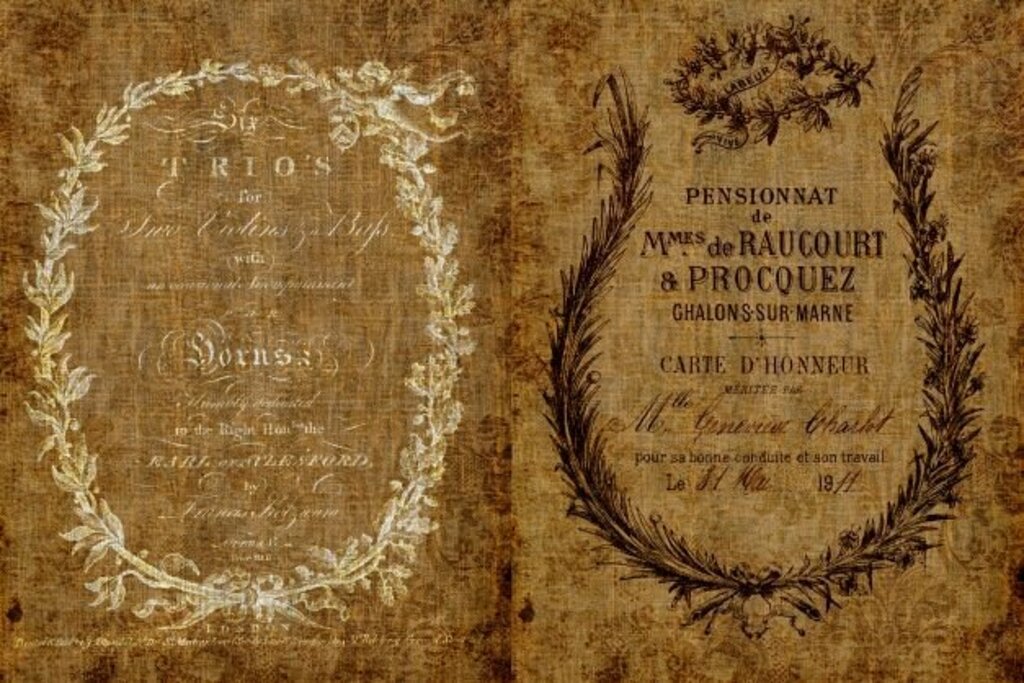 Six
TRIO'S
for
Two Violins & a Bass
(with)
an occasional Accompaniment
for
Horns
Humbly dedicated
to the Right Hon.ble the
EARL of AYLESFORD
by
LONDON
LABEUR
PENSIONNAT
de
MMES de RAUCOURT
& PROCQUEZ
CHALONS-SUR-MARNE
CARTE D'HONNEUR
MÉRITÉE PAR
Mlle Geneviève Charlot
pour sa bonne conduite et son travail
Le 31 Mai 1911